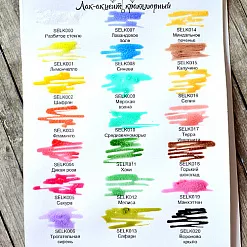 Лак-акцент кракелюрный
SELK000
Разбитое стекло
SELK007
Лавандовое поле
SELK014
Миндальное печенье
SELK001
Лимончелло
SELK008
Синева
SELK015
Капучино
SELK002
Шафран
SELK009
Морская волна
SELK016
Сепия
SELK003
Фламинго
SELK010
Средиземноморье
SELK017
Терра
SELK004
Дикая роза
SELK011
Хаки
SELK018
Горький шоколад
SELK005
Сакура
SELK012
Мелисса
SELK019
Манхэттен
SELK006
Трогательная сирень
SELK013
Сафари
SELK020
Вороново крыло